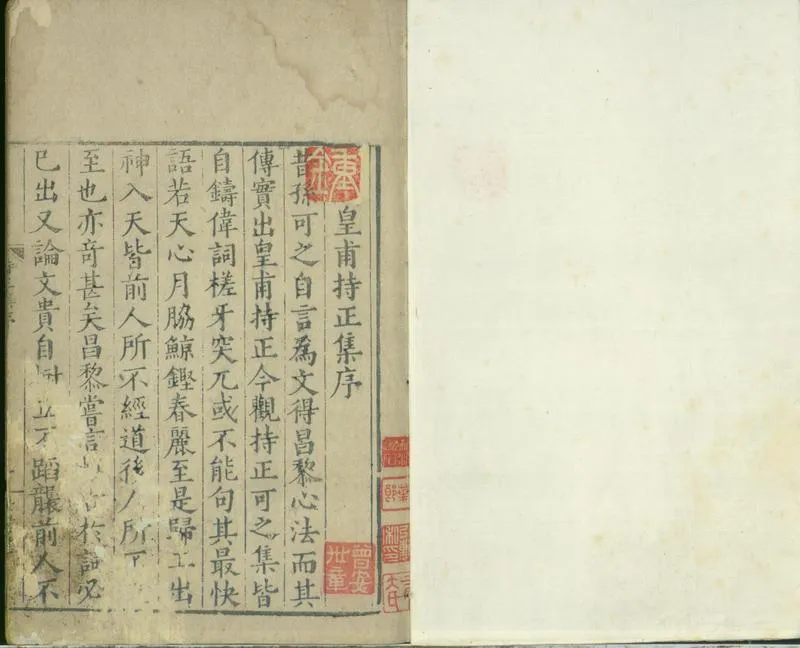 皇甫持正集序
昔孫可之自言爲文得昌黎心法而其
傳實出皇甫持正今觀持正可之集皆
自鑄偉詞槎牙突兀或不能句其最快
語若天心月脇鯨鏗春麗至是歸工出
神入天皆前人所不經道後人所不
至也亦奇甚矣昌黎嘗言 於詞必
已出又論文貴自樹立不蹈襲前人不